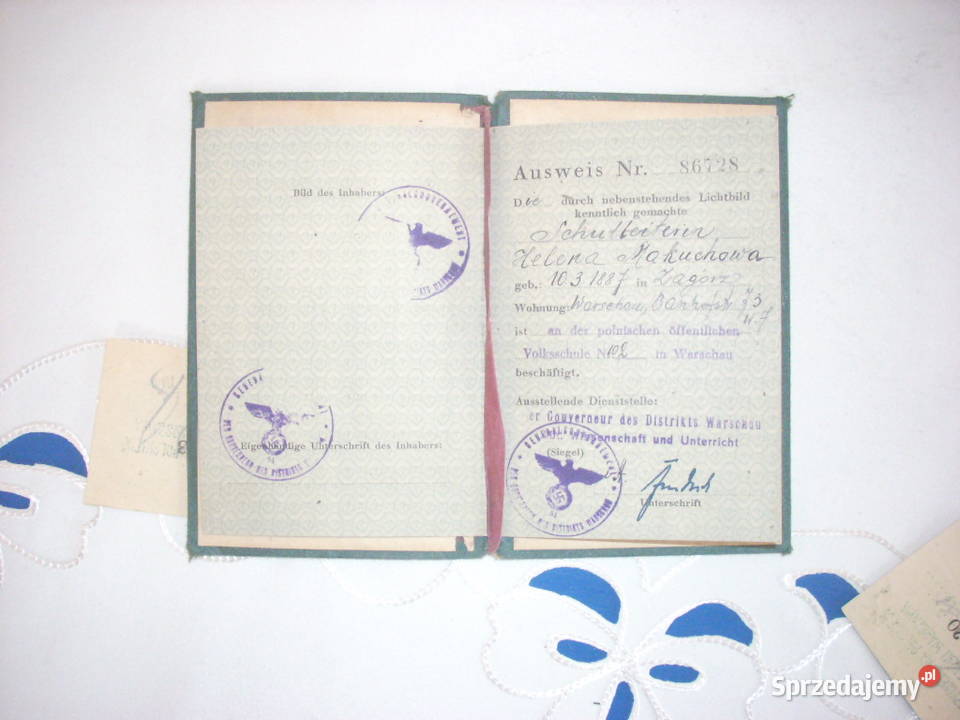 Bild des Inhabers:
Eigenhändige Unterschrift des Inhabers:
Ausweis Nr. 86728
Die durch nebenstehendes Lichtbild
kenntlich gemachte
Schulleiterin
Helena Makuchowa
geb.: 10.3.1887 in Zagórz
Wohnung: Warschau,
ist an der polnischen öffentlichen
Volksschule N 102 in Warschau
beschäftigt.
Ausstellende Dienststelle:
er Gouverneur des Distrikts Warschau
Wissenschaft und Unterricht
(Siegel)
GENERALGOUVERNEMENT
DER GOUVERNEUR DES DISTRIKTS WARSCHAU
Unterschrift
Sprzedajemy.pl